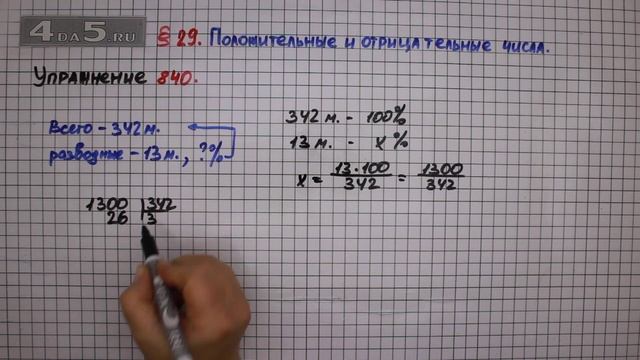 4DA5.RU
§ 29. Положительные и отрицательные числа.
Упражнение 840.
Всего - 342 м.
разводные - 13 м., ?%
342 м. - 100%
13 м. - x%
x = 13·100/342 = 1300/342
1300 | 342
26 | 3